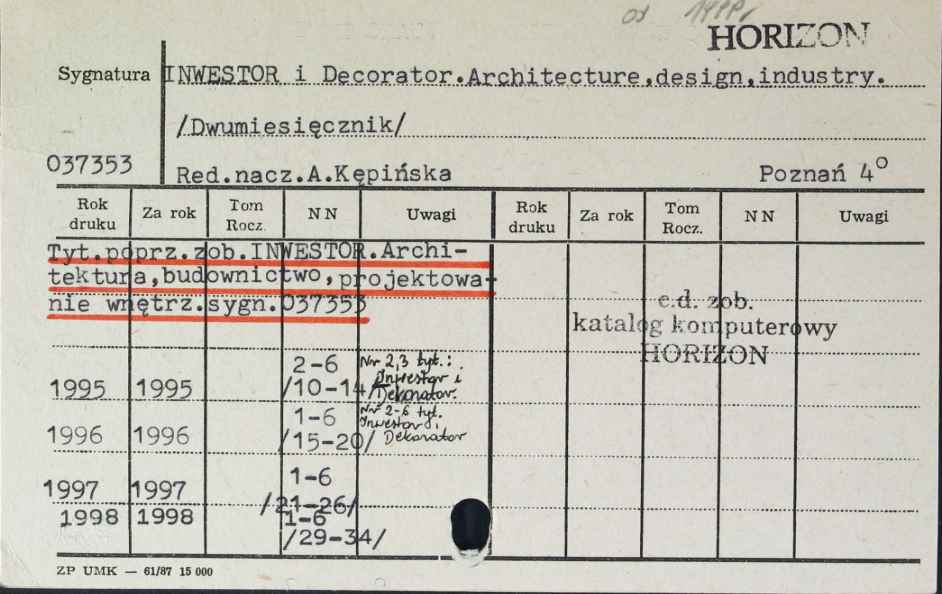 od 1999r
HORIZON
Sygnatura INWESTOR i Decorator.Architecture,design,industry.
/Dwumiesięcznik/
037353 Red.nacz.A.Kępińska Poznań 4°
Rok druku Za rok Tom Rocz. NN Uwagi Rok druku Za rok Tom Rocz. NN Uwagi
Tyt.poprz.zob.INWESTOR.Archi-
tektura,budownictwo,projektowa-
nie wnętrz.sygn.037353
c.d. zob.
katalog komputerowy
HORIZON
2-6 Nr 2,3 tyt.:
1995 1995 /10-14/ Inwestor i
Dekorator.
1-6 Nr 2-6 tyt.
Inwestor i
1996 1996 /15-20/ Dekorator
1-6
1997 1997 /21-26/
1998 1998 1-6
/29-34/
ZP UMK — 61/87 15 000